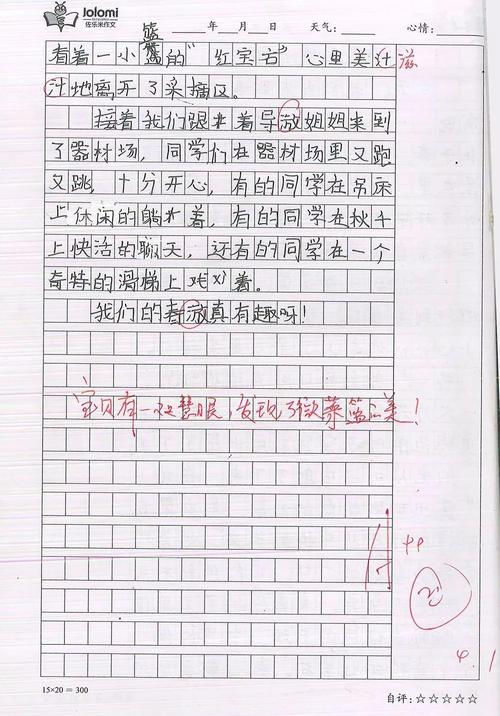 lolomi
佐乐米作文
年 月 日 天气： 心情：
篮
看着一小篮的“红宝石”心里美汁 滋
汁地离开了采摘区。
接着我们跟着导游姐姐来到
了器材场，同学们在器材场里又跑
又跳，十分开心，有的同学在吊床
上休闲的躺着，有的同学在秋千
上快活的聊天，还有的同学在一个
奇特的滑梯上戏着。
我们的春游真有趣呀！
宝贝有一双慧眼，发现了美！
优
4.1
15×20＝300
自评：☆☆☆☆☆